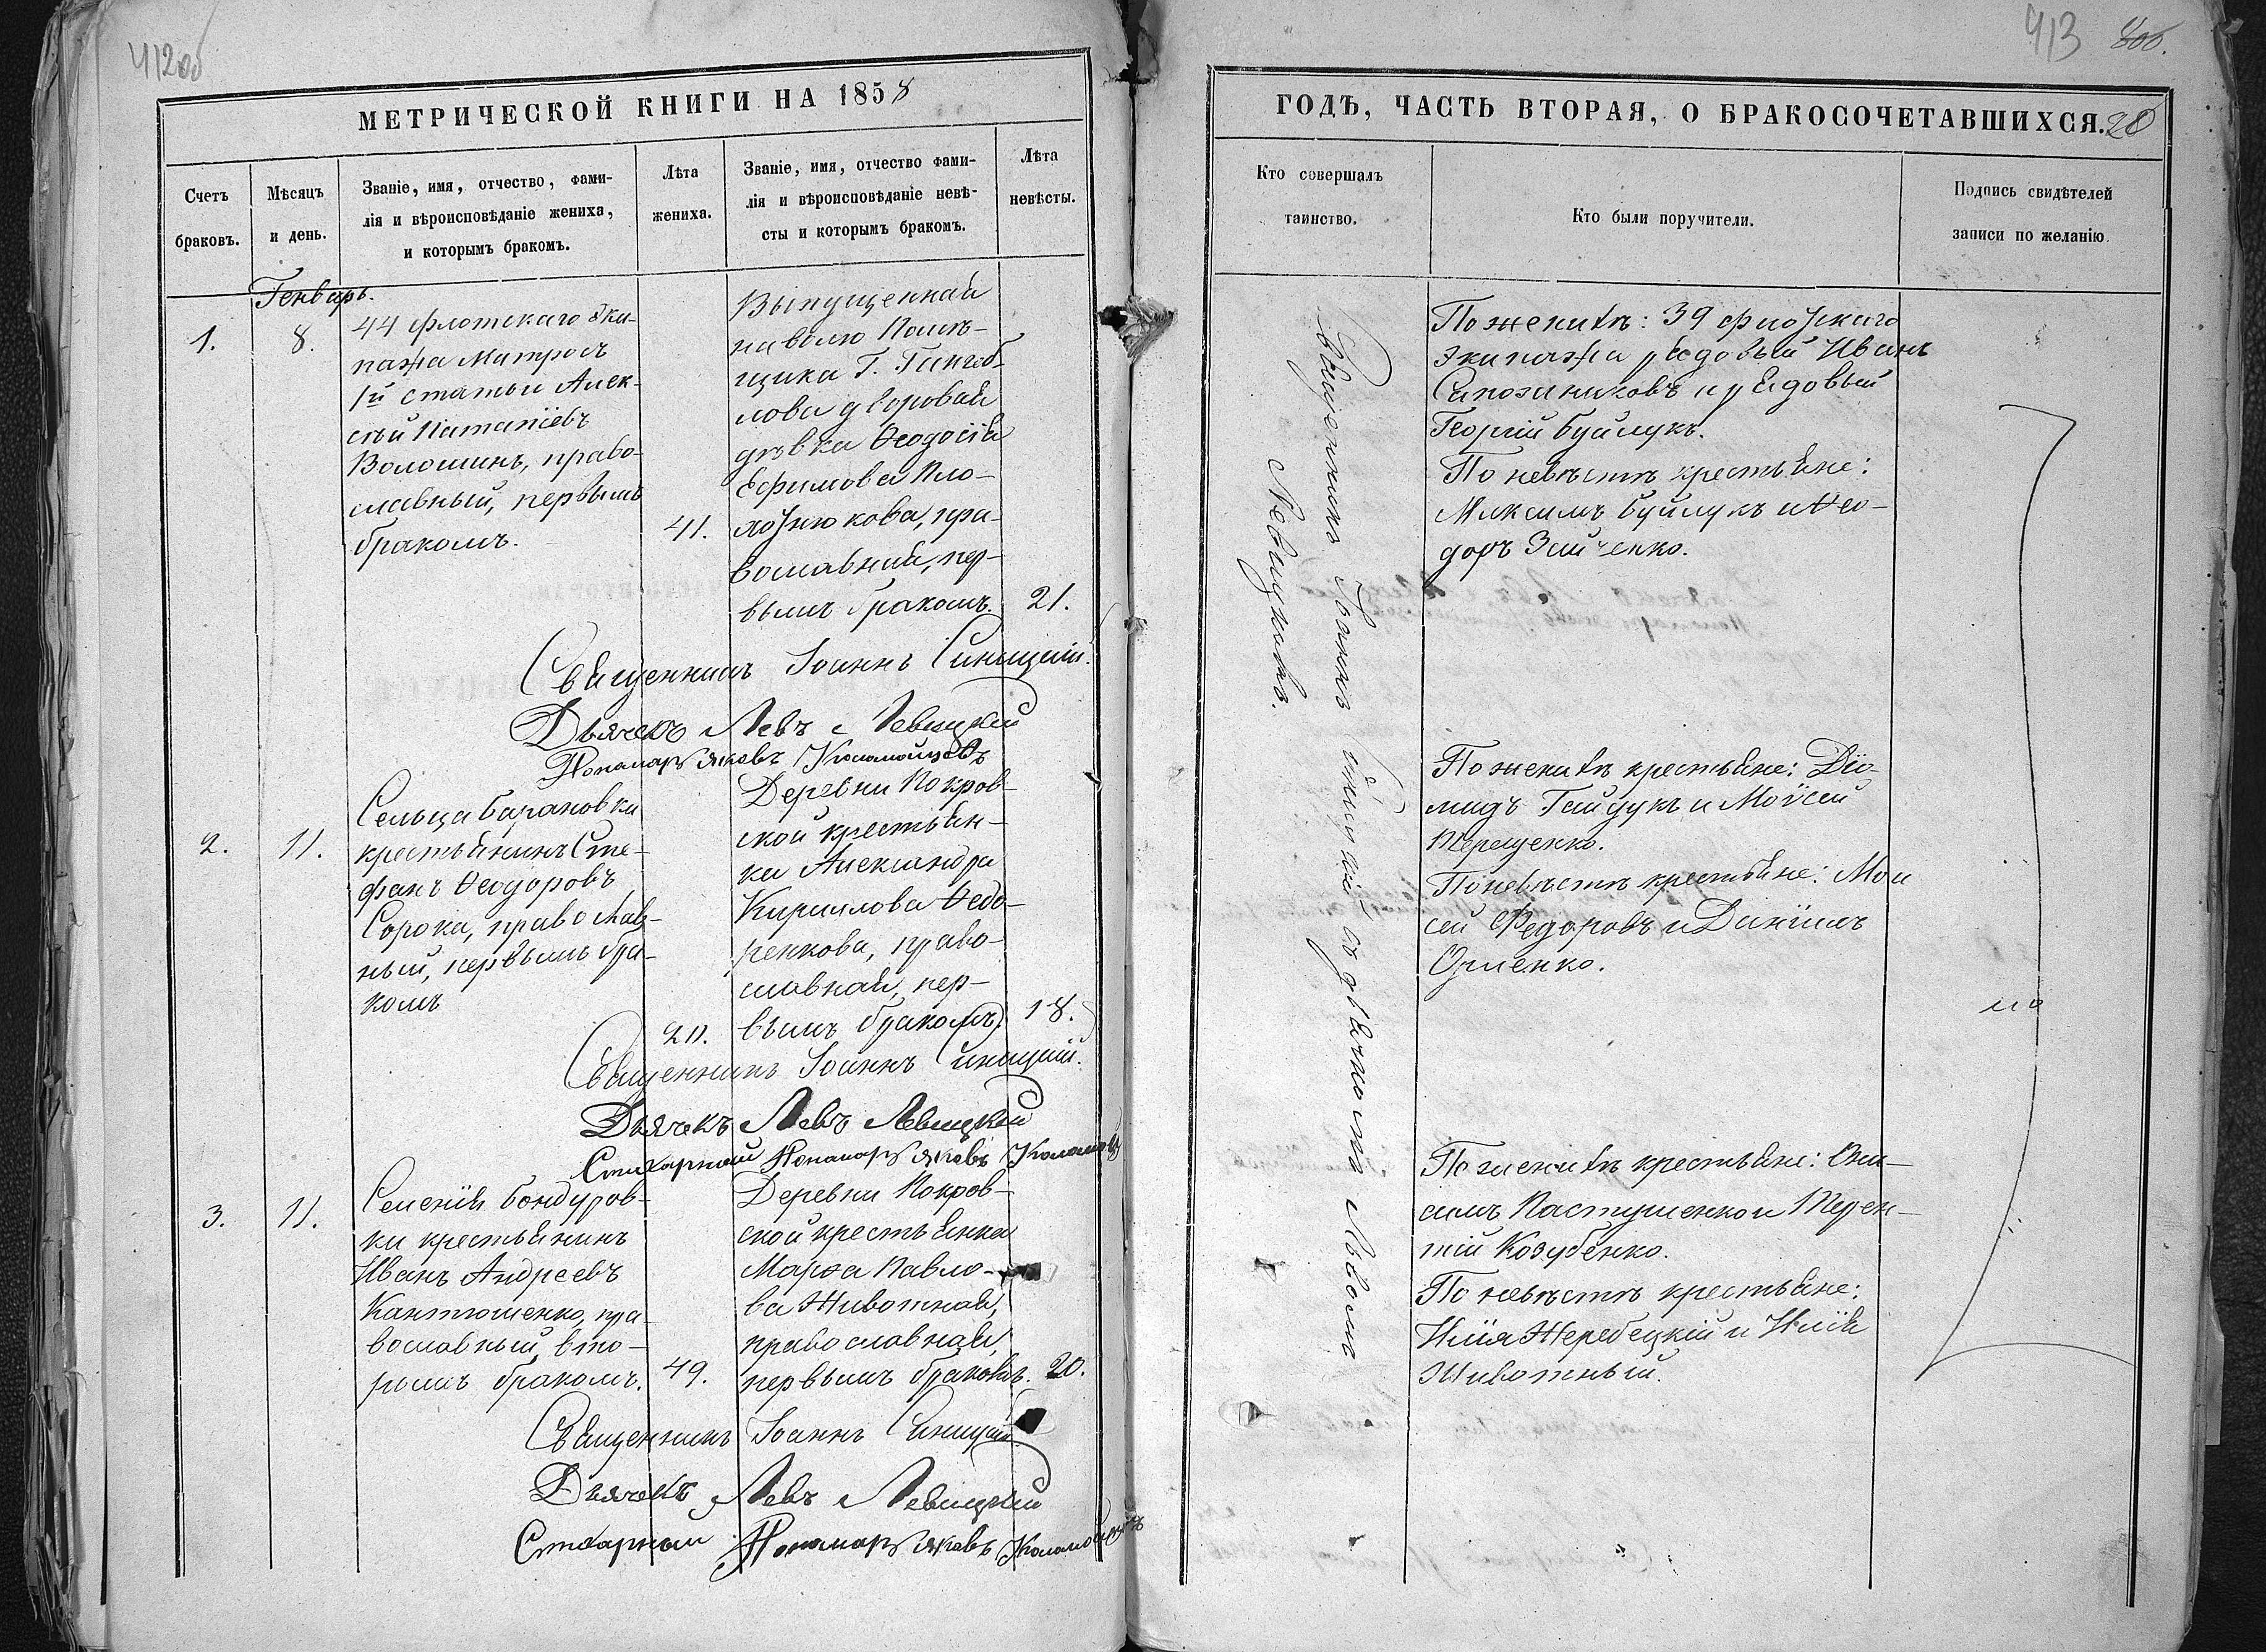 412об
МЕТРИЧЕСКОЙ КНИГИ НА 1858
Счетъ
браковъ.
Мѣсяцъ
и день.
Званіе, имя, отчество, фами-
лія и вѣроисповѣданіе жениха,
и которымъ бракомъ.
Лѣта
жениха.
Званіе, имя, отчество фами-
лія и вѣроисповѣданіе невѣ-
сты и которымъ бракомъ.
Лѣта
невѣсты.
Генварь.
1.
8.
44 флотскаго эки-
пажа Матросъ
1й статьи Алек-
сѣй Патапіевъ
Волошинъ, право-
славный, первымъ
бракомъ.
41.
Выпущенная
на волю Помѣ-
щика Г.
лова дворовая
дѣвка Ѳеодосія
Ефимова Пло-
хотнюкова, пра-
вославная, пер-
вымъ бракомъ.
21.
Священникъ Іоаннъ Синицкій.
Дьячекъ Левъ Левицкій
Пономарь Яковъ Коломойцевъ
2.
11.
Сельца Барановки
крестьянинъ Сте-
фанъ Ѳеодоровъ
Сорока, православ-
ный, первымъ бра-
комъ
20.
Деревни Покров-
ской крестьян-
ка Александра
Кириллова Ѳедо-
ренкова, право-
славная, пер-
вымъ бракомъ.
18.
Священникъ Іоаннъ Синицкій.
Дьячекъ Левъ Левицкій
Стихарный Пономарь Яковъ
3.
11.
Селенія Бондуров-
ки крестьянинъ
Иванъ Андреевъ
Кантюшенко, пра-
вославный, вто-
рымъ бракомъ.
49.
Деревни Покров-
ской крестьянка
Марѳа Павло-
ва Животная,
православная,
первымъ бракомъ.
20.
Священникъ Іоаннъ Синицкій
Дьячекъ Левъ Левицкій
Стихарный Пономарь Яковъ Коломойцевъ
413
ГОДѢ, ЧАСТЬ ВТОРАЯ, О БРАКОСОЧЕТАВШИХСЯ.
20
Кто совершалъ
таинство.
Кто были поручители.
Подпись свидѣтелей
записи по желанію.
Священникъ Іоаннъ Синицкій съ дьячкомъ Львомъ
Левицкимъ.
По женихѣ: 39 флотскаго
экипажа рядовый Иванъ
Сапожниковъ и рядовый
Георгій Буйлукъ.
По невѣстѣ крестьяне:
Максимъ Буйлукъ и Ѳео-
доръ Зайченко.
По женихѣ крестьяне: Діо-
мидъ Гайдукъ и Моѵсей
Терещенко.
По невѣстѣ крестьяне: Мои
сей Федоровъ и Даніилъ
По женихѣ крестьяне: Они-
симъ Пастушенко и Терен-
тій Козубенко.
По невѣстѣ крестьяне:
Илія Жеребецкій и Илія
Животный.